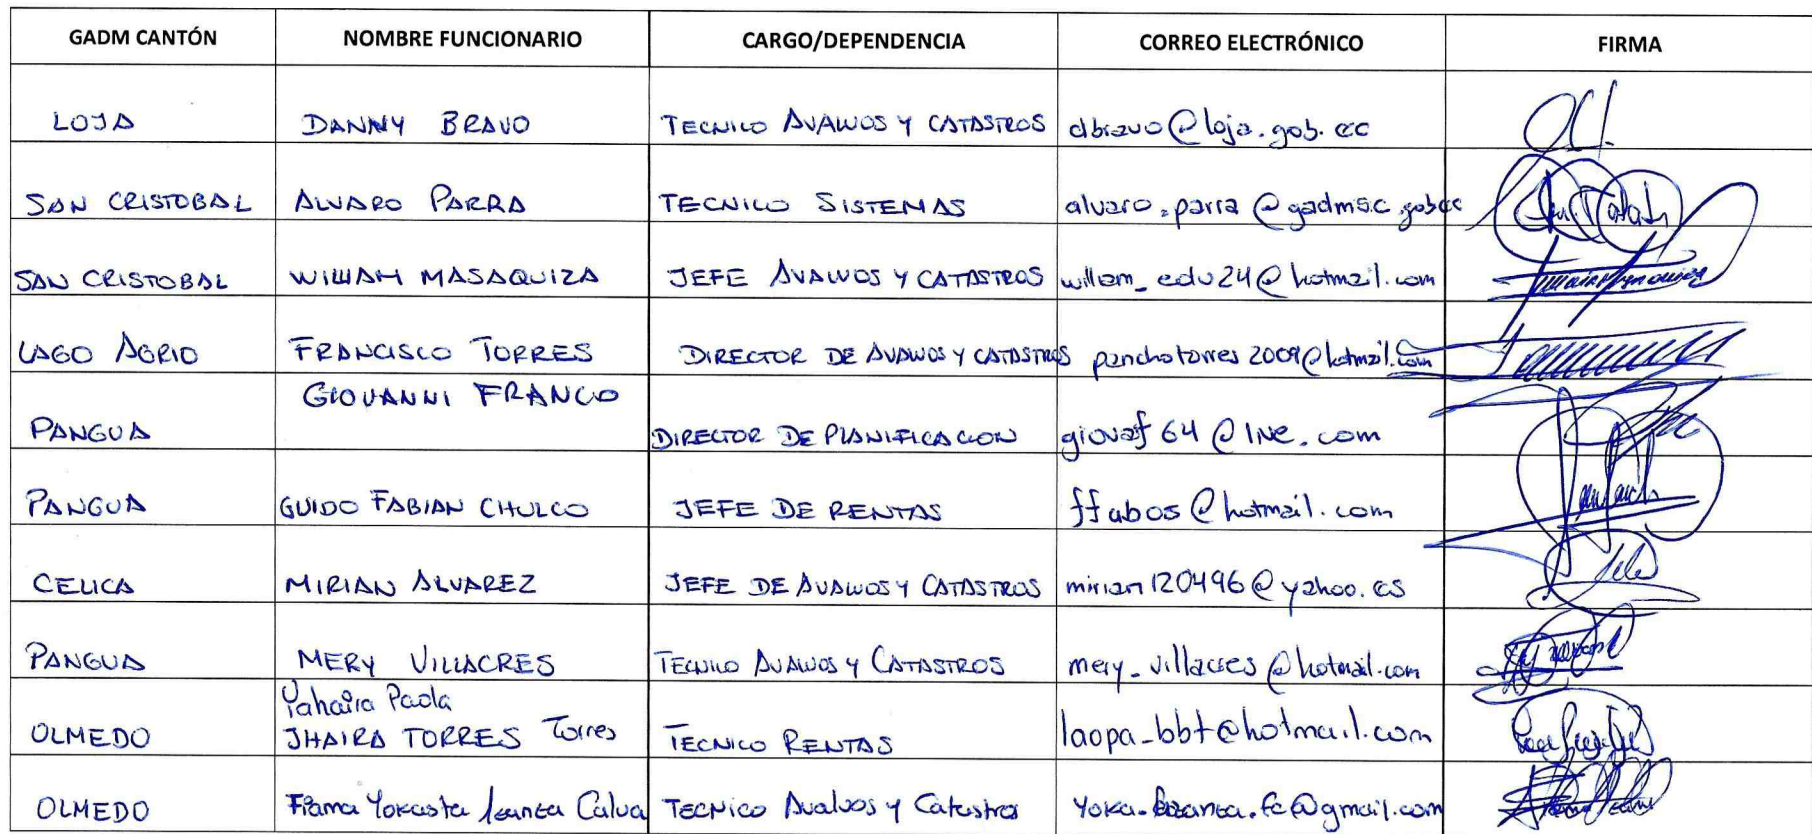 GADM CANTÓN NOMBRE FUNCIONARIO CARGO/DEPENDENCIA CORREO ELECTRÓNICO FIRMA
LOJA DANNY BRAVO TECNICO AVALUOS Y CATASTROS dbravo@loja.gob.ec
SAN CRISTOBAL ALVARO PARRA TECNICO SISTEMAS alvaro.parra@gadmsc.gob.ec
SAN CRISTOBAL WILLIAM MASAQUIZA JEFE AVALUOS Y CATASTROS william_edu24@hotmail.com
LAGO AGRIO FRANCISCO TORRES DIRECTOR DE AVALUOS Y CATASTROS panchotorres2009@hotmail.com
GIOVANNI FRANCO
PANGUA DIRECTOR DE PLANIFICACION giovaf64@live.com
PANGUA GUIDO FABIAN CHULCO JEFE DE RENTAS ffabos@hotmail.com
CELICA MIRIAN ALVAREZ JEFE DE AVALUOS Y CATASTROS mirian120496@yahoo.es
PANGUA MERY VILLACRES TECNICO AVALUOS Y CATASTROS mery_villacres@hotmail.com
Yahaira Paola
OLMEDO JHAIRA TORRES Torres TECNICO RENTAS laopa_bbt@hotmail.com
OLMEDO Fiama Yokasta Calva TECNICO Avaluos y Catastro